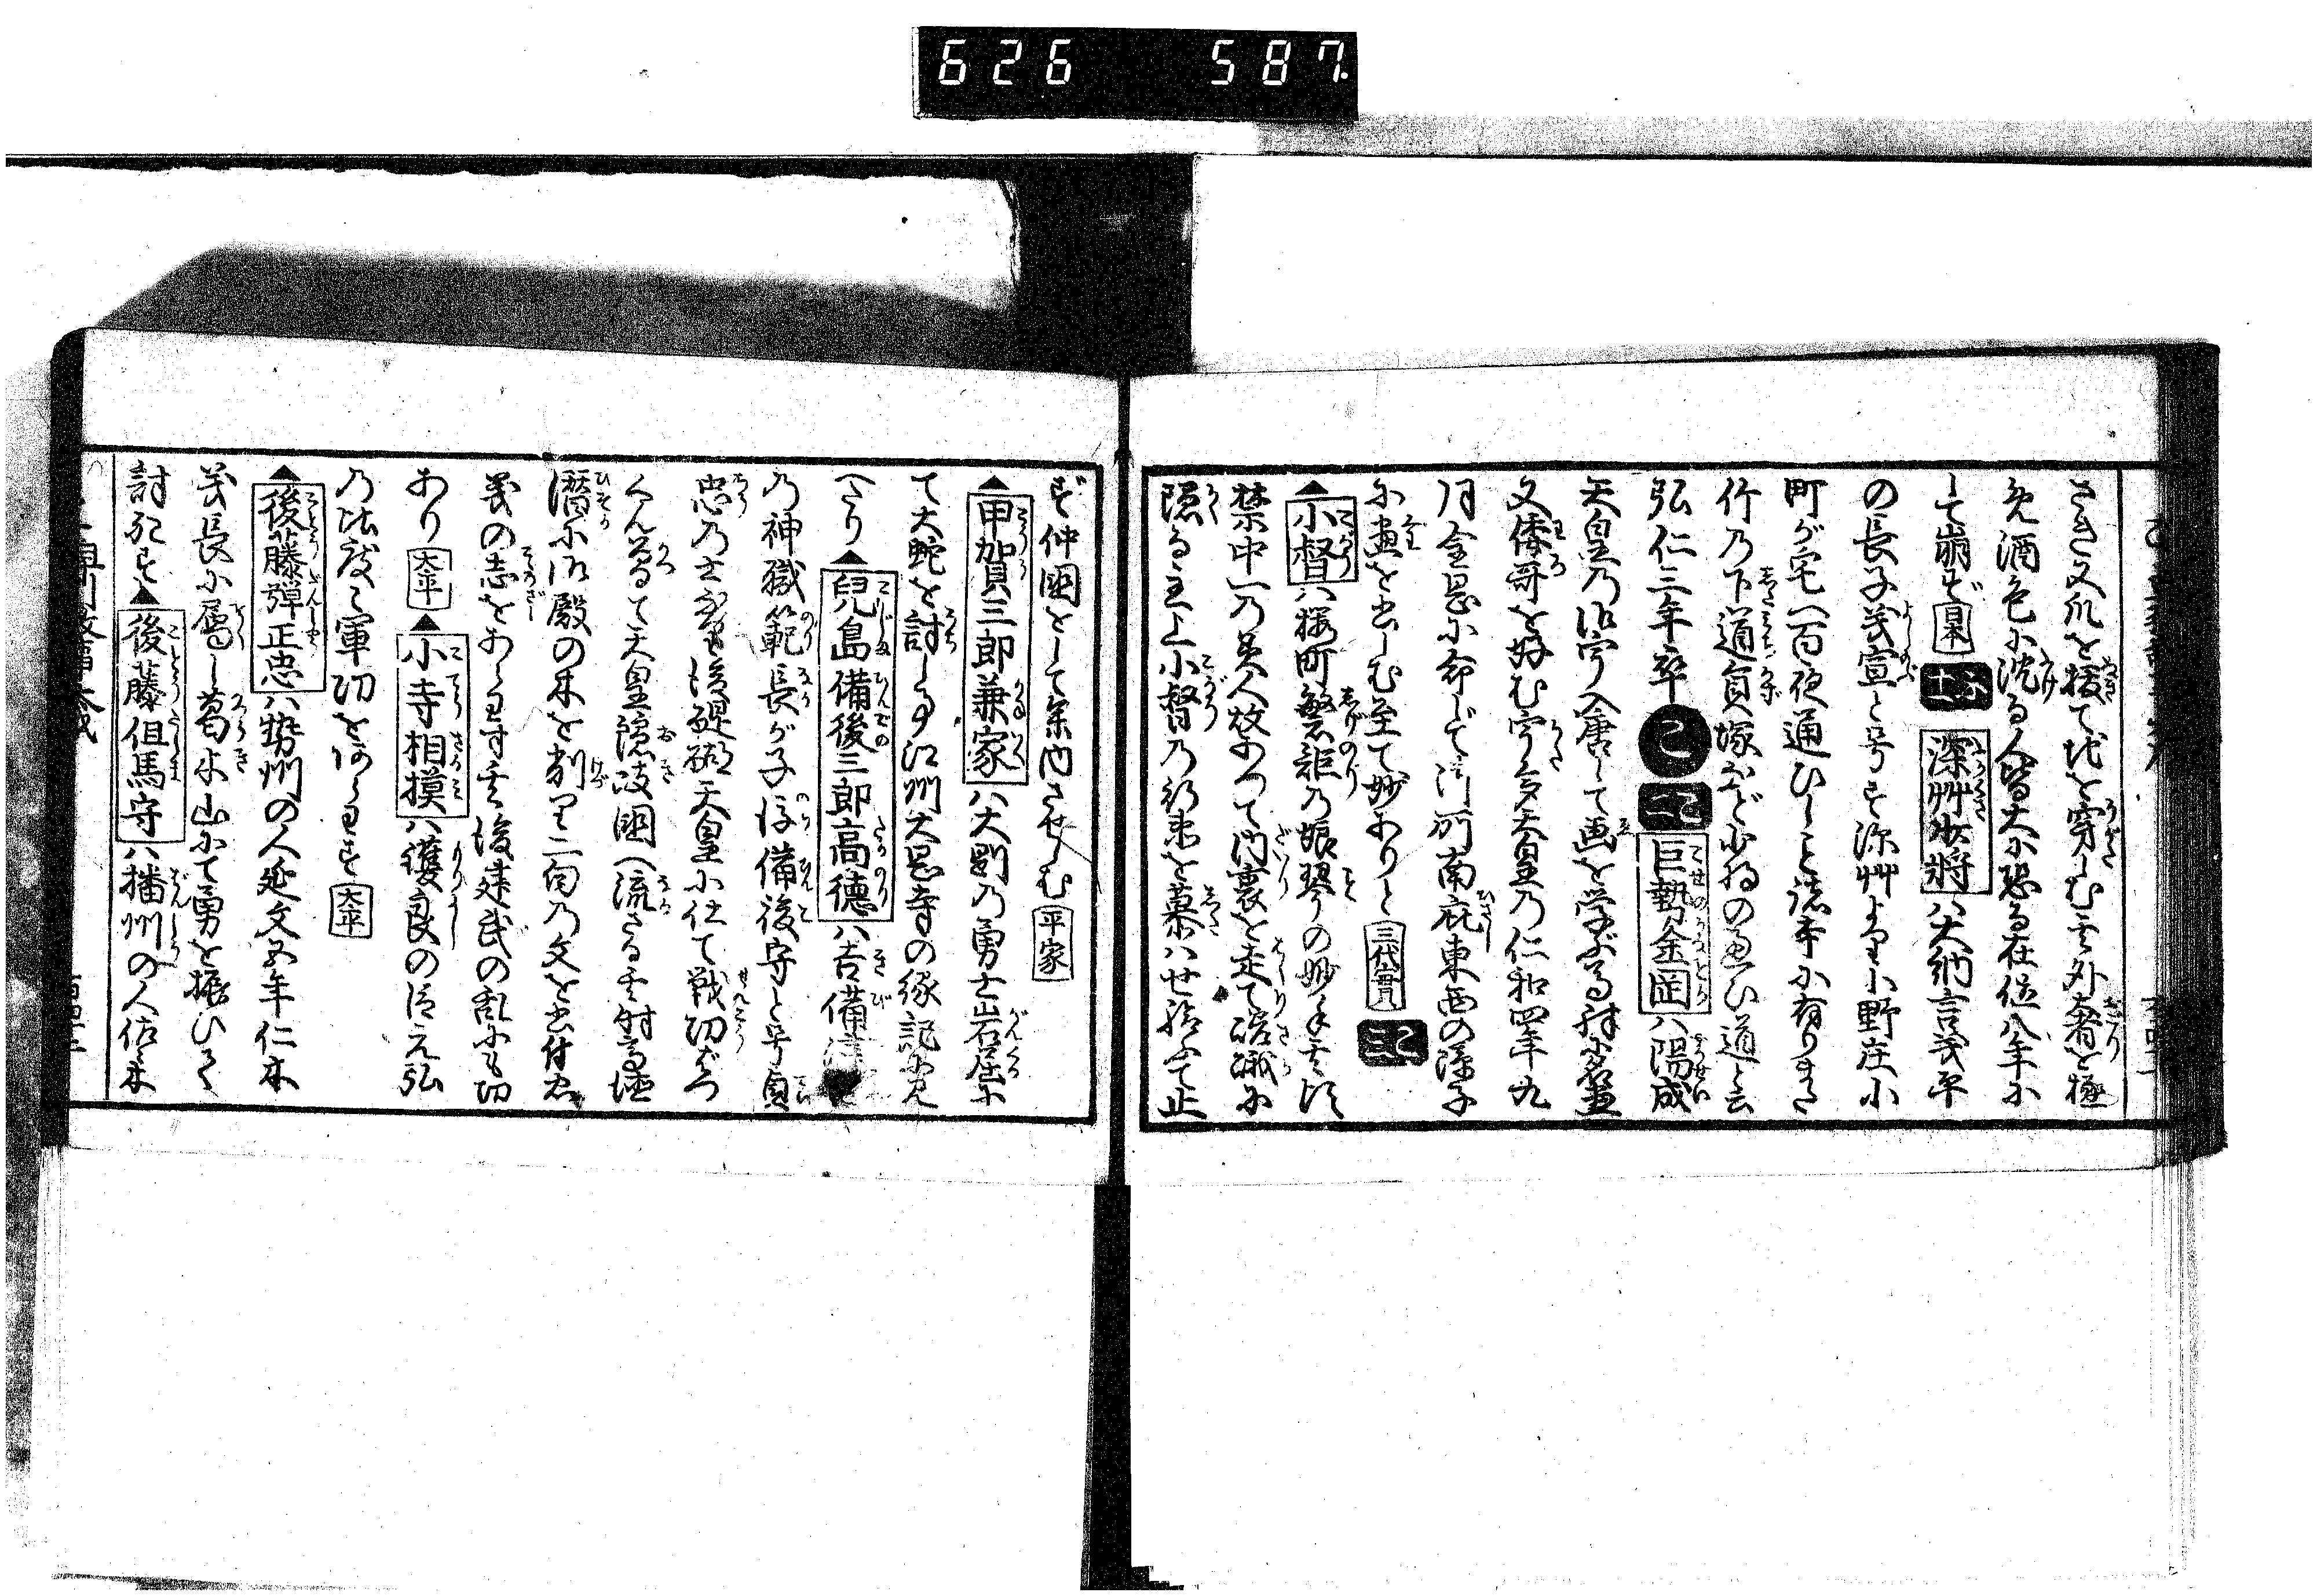 626 587
さき又爪を抜て地を穿しむ其外奢を極
め酒色に沈る人皆大に恐る在位八年に
して崩ず 日本 ふ 十一 深艸少将ハ大納言義平
の長子義宣と号す深艸より小野庄小
町が宅へ百夜通ひしこと諸書に有りまた
竹乃下道負塚など少将の通ひ道と云
弘仁三年卒 こ こ 二 巨勢金岡ハ陽成
天皇乃御宇入唐して画を学ぶ
又倭哥を好む宇多天皇乃仁和四年九
月金岡に命じて御所南庇東西の障子
に画を書しむ至て妙ありと 三代実录 こ 三
▲小督ハ桜町繁範乃娘琴の妙手其頃
禁中一の美人故あつて内裏を走て嵯峨に
隠る主上小督乃行末を慕ハせ給ふて止
ず仲国をして参内させしむ 平家
▲甲賀三郎兼家ハ大剛乃勇士岩屋に
て大蛇を討し事江州大恩寺の縁記に見
へたり▲兒島備後三郎高徳ハ吉備津
乃神職範長が子後備後守と号貞
忠乃士なり後醍醐天皇に仕て戦功
天皇隠岐国へ流さる其時高徳
潜に御殿の木を削り二句乃文を書付忠
義の志をあらハす其後建武の乱にも功
あり 太平 ▲小寺相摸ハ護良の臣元弘
乃比度々軍功をあらハす 太平
▲後藤弾正忠ハ勢州の人延文五年仁木
義長に属し葛木山にて勇を振ひて
討死す▲後藤但馬守ハ播州の人佐々木